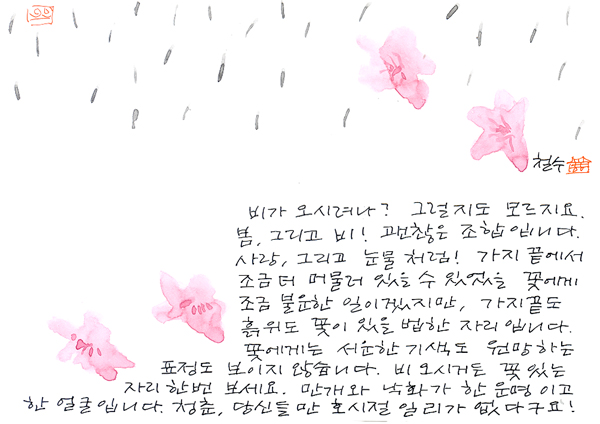 철수
비가 오시려나? 그럴지도 모르지요.
봄, 그리고 비! 괜찮은 조합입니다.
사랑, 그리고 눈물 처럼! 가지 끝에서
조금 더 머물러 있을 수 있었을 꽃에게
조금 불운한 일이겠지만, 가지끝도
흙위도 꽃이 있을 법한 자리입니다.
꽃에게는 서운한 기색도 원망하는
표정도 보이지 않습니다. 비 오시거든 꽃 있는
자리 한번 보세요. 만개와 낙화가 한 운명 이고
한 얼굴입니다. 청춘, 당신들만 호시절 일리가 없다구요!